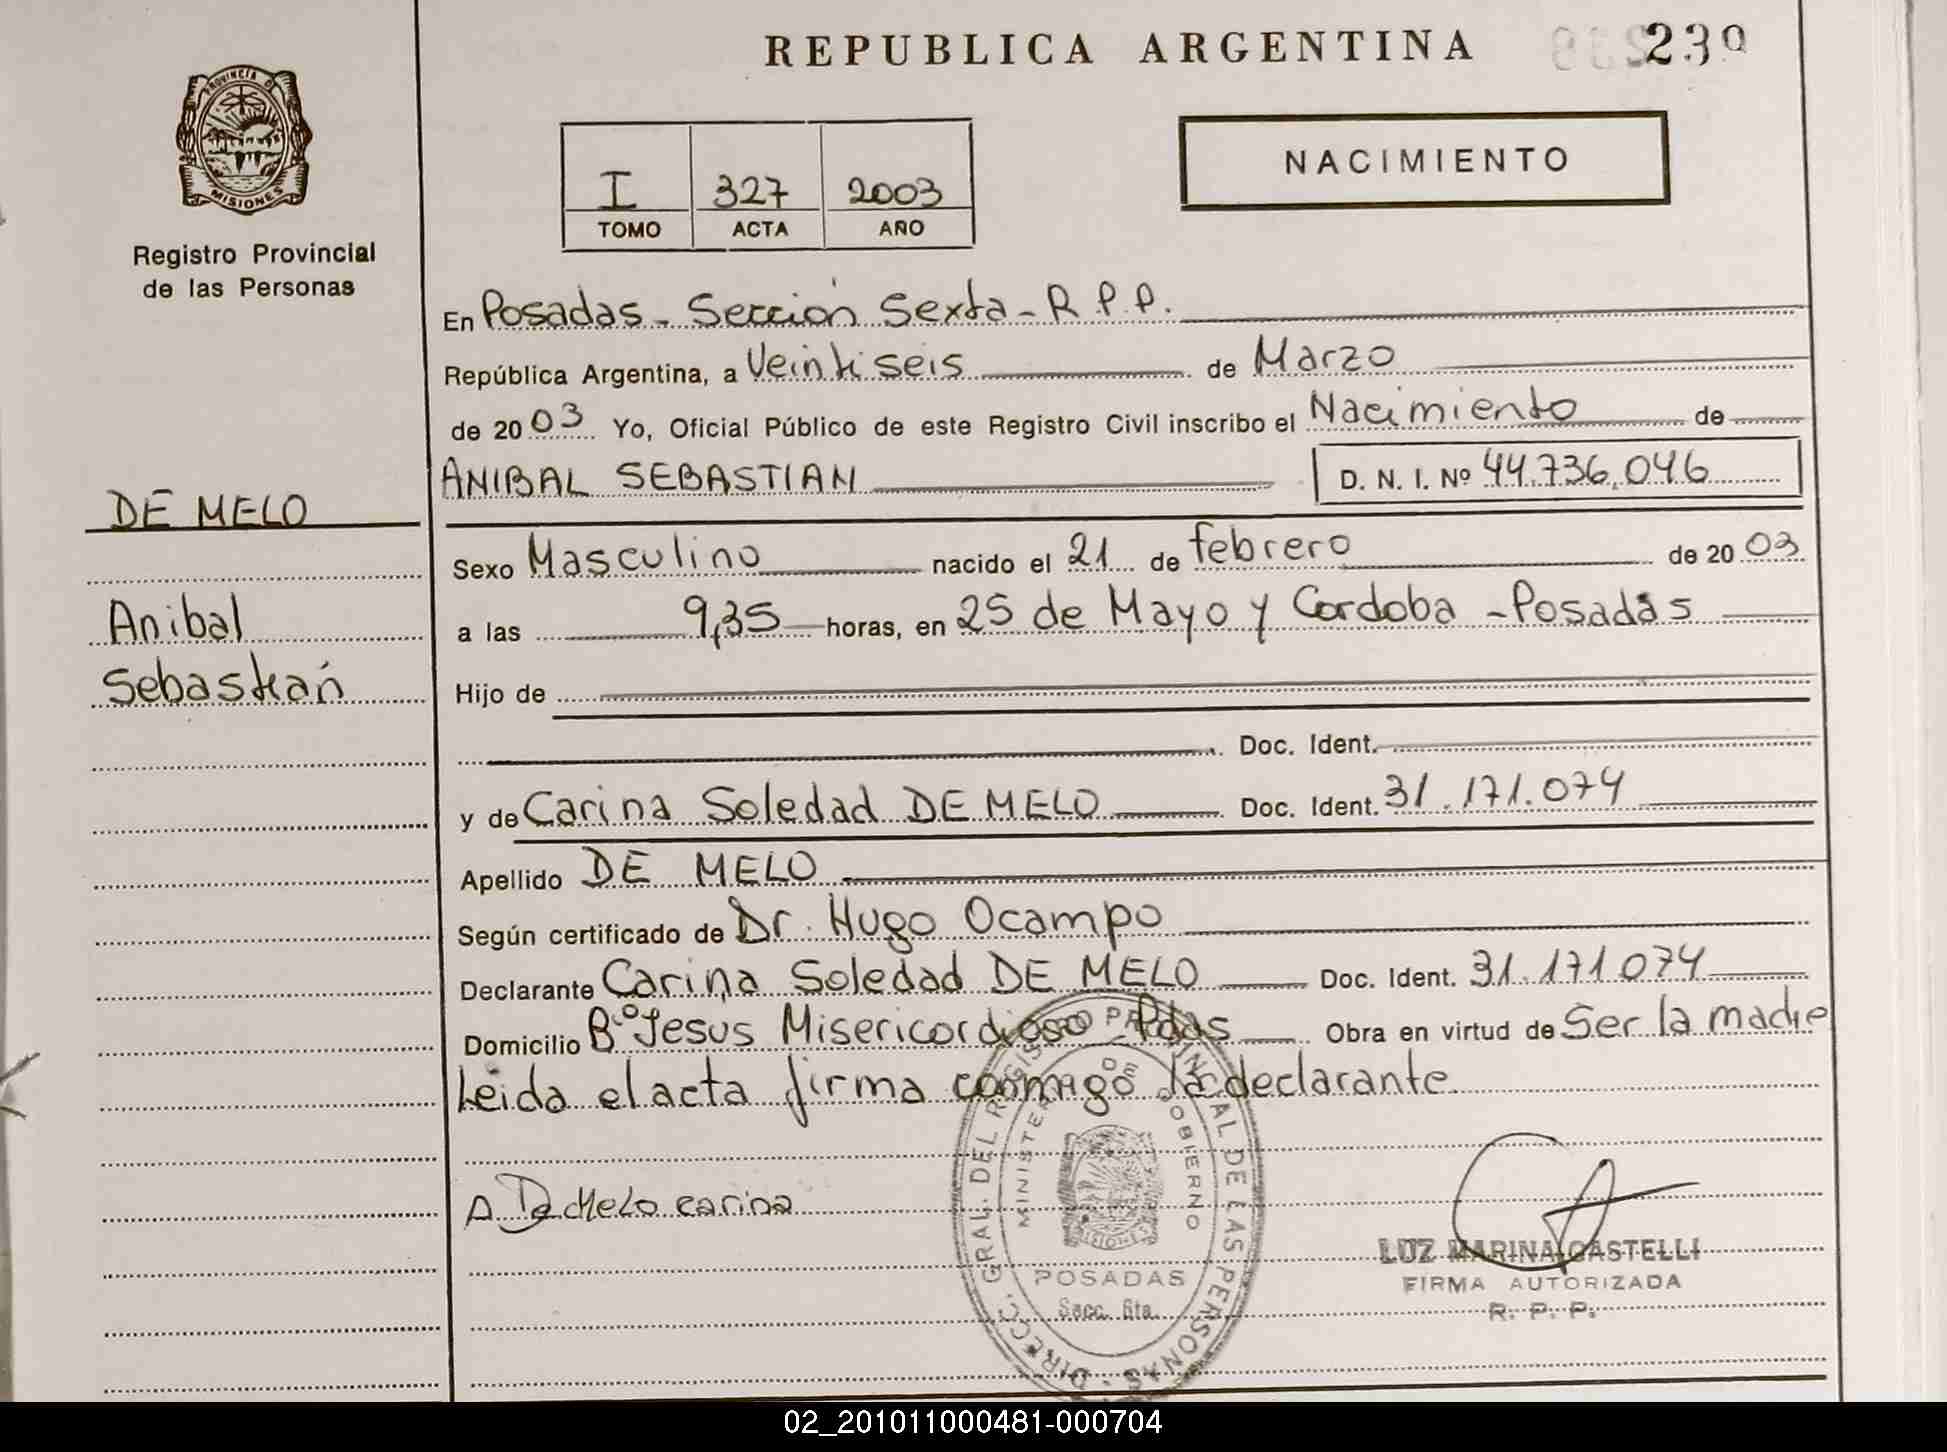 REPUBLICA ARGENTINA
239
PROVINCIA D
MISIONES
Registro Provincial
de las Personas
I 327 2003
TOMO ACTA AÑO
NACIMIENTO
En Posadas - Sección Sexta - R.P.P.
República Argentina, a Veintiseis de Marzo
de 2003 Yo, Oficial Público de este Registro Civil inscribo el Nacimiento de
ANIBAL SEBASTIAN D. N. I. Nº 44.736.046
DE MELO
Anibal
Sebastián
Sexo Masculino nacido el 21 de febrero de 2003
a las 9,35 horas, en 25 de Mayo y Cordoba - Posadas
Hijo de
Doc. Ident.
y de Carina Soledad DE MELO Doc. Ident. 31.171.074
Apellido DE MELO
Según certificado de Dr. Hugo Ocampo
Declarante Carina Soledad DE MELO Doc. Ident. 31.171.074
Domicilio Bº Jesus Misericordioso - Pdas Obra en virtud de Ser la madre
Leida el acta firma conmigo la declarante
De Melo carina
DIRECC. GRAL. DEL REGISTRO PROVINCIAL DE LAS PERSONAS
MINISTERIO DE GOBIERNO
MISIONES
POSADAS
Secc. 6ta.
LUZ MARINA CASTELLI
FIRMA AUTORIZADA
R. P. P.
02_201011000481-000704